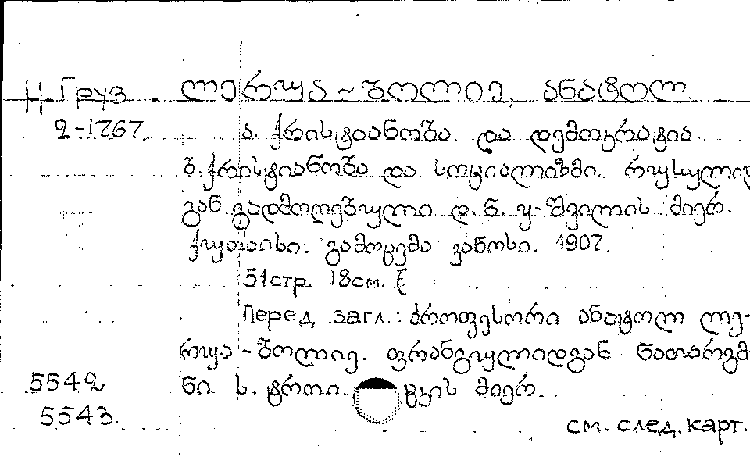 Груз ლერუა-ბოლიე, ანატოლ
2-1767. ა. ქრისტიანობა და დემოკრატია
ბ. ქრისტიანობა და სოციალიზმი. რუსულიდ
გან გადმოღებული დ. ნ. უ-შვილის მიერ.
ქუთაისი. გამოცემა კანოსი. 1907.
51 стр. 18 см.
Перед загл.: პროფესორი ანატოლ ლე-
რუა-ბოლიე. ფრანგულიდგან ნათარგმ
5542 ნი ს. ტროი ცკის მიერ.
5543. см. след. карт.